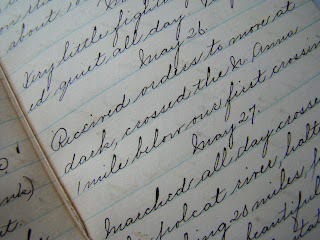 about
Very little fighting
ed quiet all day
May 26.
Received orders to move at
dark, crossed the N. Anna
1 mile below our first crossin
May 27.
Marched all day crosse
polcat river, halt
ing 25 miles, f
beautiful
nk)
t.